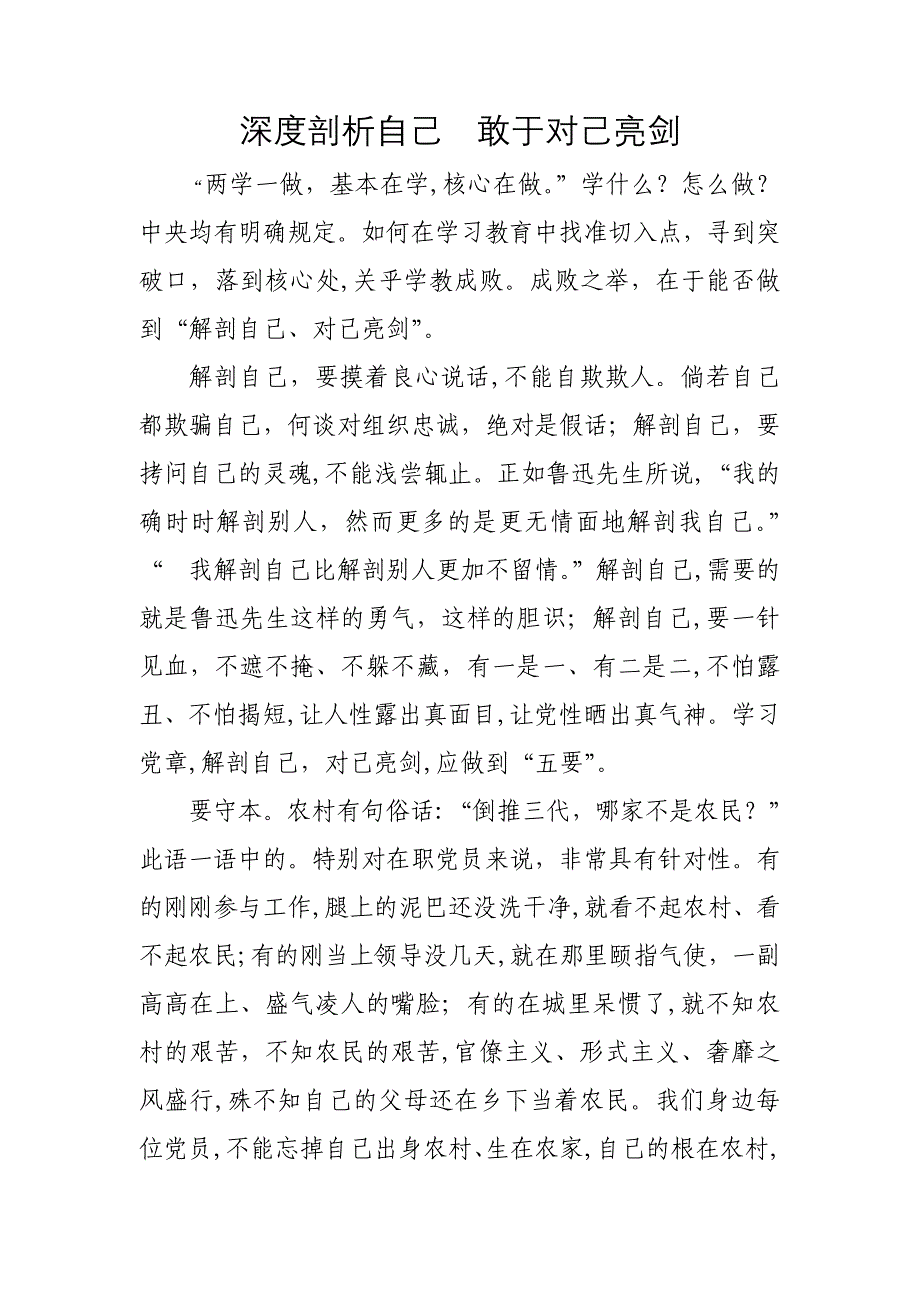 深度剖析自己　敢于对己亮剑
“两学一做，基本在学,核心在做。”学什么？怎么做？
中央均有明确规定。如何在学习教育中找准切入点，寻到突
破口，落到核心处,关乎学教成败。成败之举，在于能否做
到“解剖自己、对己亮剑”。
解剖自己，要摸着良心说话,不能自欺欺人。倘若自己
都欺骗自己，何谈对组织忠诚，绝对是假话；解剖自己，要
拷问自己的灵魂,不能浅尝辄止。正如鲁迅先生所说，“我的
确时时解剖别人，然而更多的是更无情面地解剖我自己。”
“　我解剖自己比解剖别人更加不留情。”解剖自己,需要的
就是鲁迅先生这样的勇气，这样的胆识；解剖自己,要一针
见血，不遮不掩、不躲不藏，有一是一、有二是二,不怕露
丑、不怕揭短,让人性露出真面目,让党性晒出真气神。学习
党章,解剖自己，对己亮剑,应做到“五要”。
要守本。农村有句俗话：“倒推三代，哪家不是农民？”
此语一语中的。特别对在职党员来说，非常具有针对性。有
的刚刚参与工作,腿上的泥巴还没洗干净,就看不起农村、看
不起农民;有的刚当上领导没几天,就在那里颐指气使，一副
高高在上、盛气凌人的嘴脸；有的在城里呆惯了,就不知农
村的艰苦，不知农民的艰苦,官僚主义、形式主义、奢靡之
风盛行,殊不知自己的父母还在乡下当着农民。我们身边每
位党员,不能忘掉自己出身农村、生在农家,自己的根在农村,